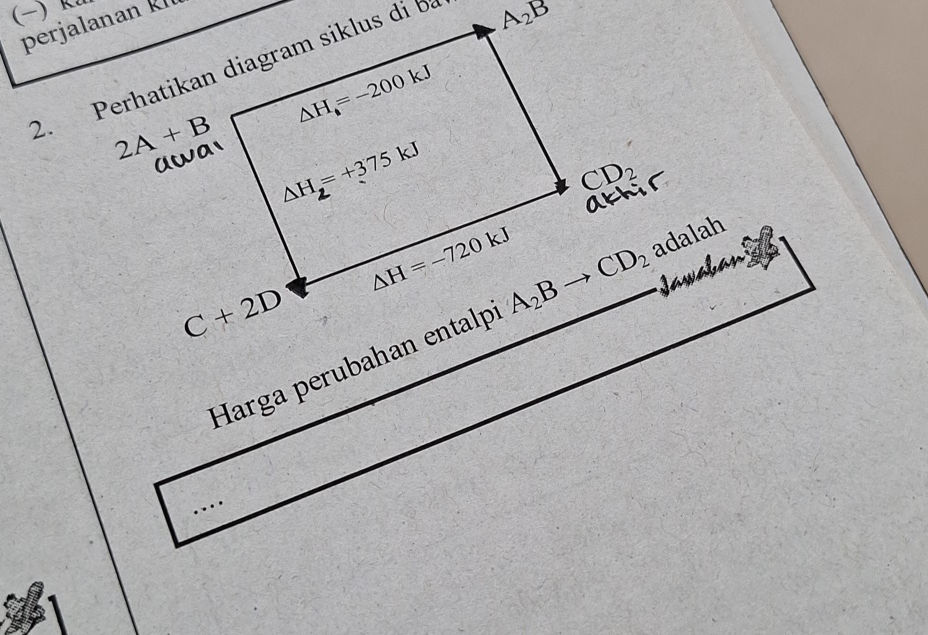 (−)
perjalanan
2. Perhatikan diagram siklus di
2A + B
awal
A₂B
ΔH₁ = −200 kJ
ΔH₂ = +375 kJ
CD₂
akhir
ΔH = −720 kJ
C + 2D
Harga perubahan entalpi A₂B → CD₂ adalah
Jawaban
....